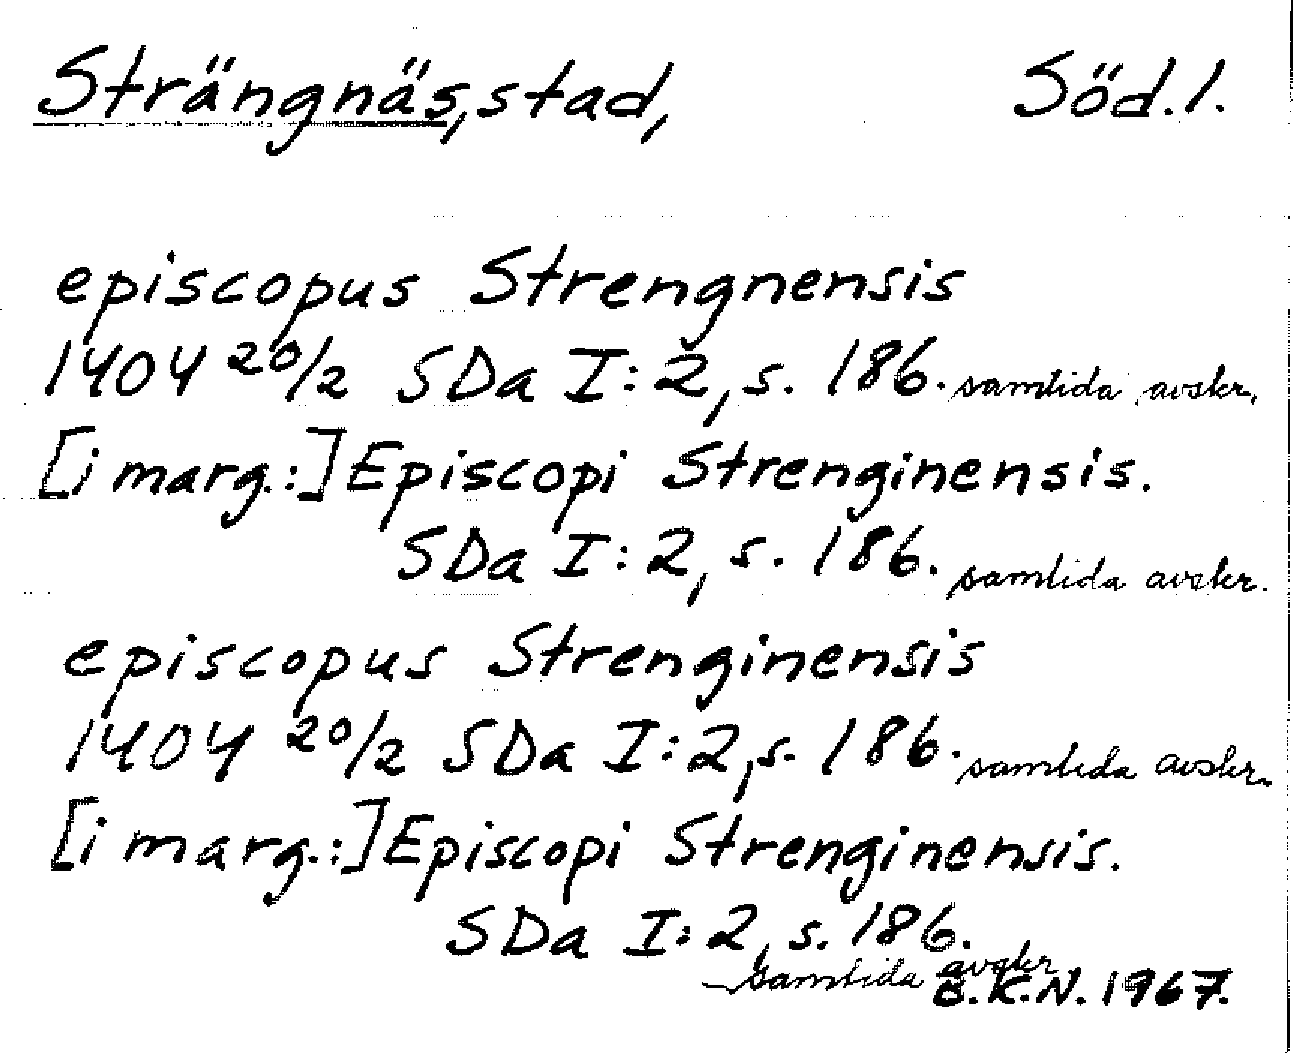 Strängnäs, stad, Söd.l.
episcopus Strengnensis
1404 20/2 SDa I:2, s. 186. samtida avskr.
[i marg.:] Episcopi Strenginensis.
SDa I:2, s. 186. samtida avskr.
episcopus Strenginensis
1404 20/2 SDa I:2, s. 186. samtida avskr.
[i marg.:] Episcopi Strenginensis.
SDa I:2, s. 186.
samtida avskr
B.K.N. 1967.